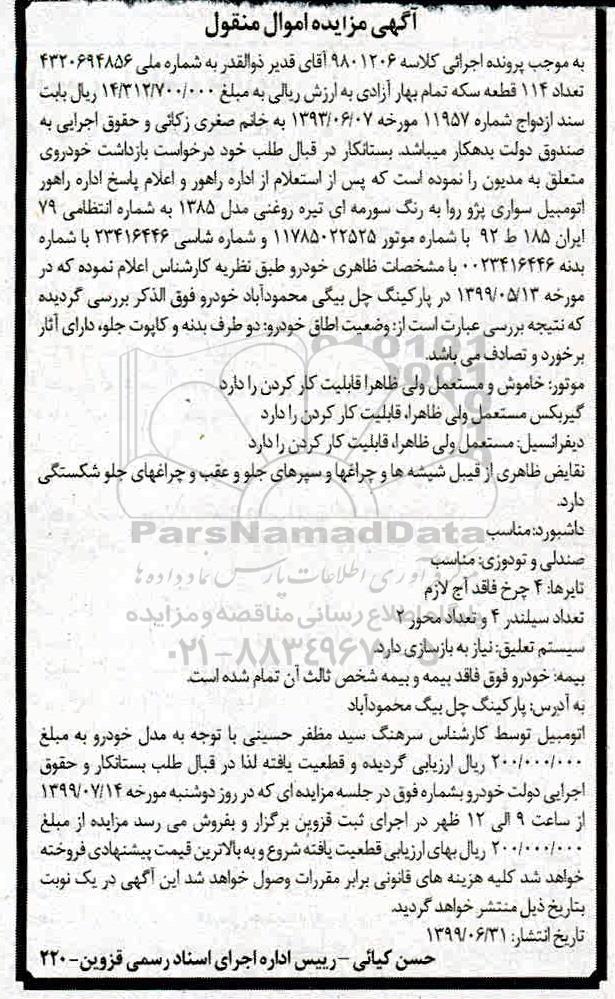 آگهی مزایده اموال منقول
به موجب پرونده اجرائی کلاسه ۹۸۰۱۲۰۶ آقای قدیر ذوالقدر به شماره ملی ۴۳۲۰۶۹۴۸۵۶
تعداد ۱۱۴ قطعه سکه تمام بهار آزادی به ارزش ریالی به مبلغ ۱۴/۳۱۲/۷۰۰/۰۰۰ ریال بابت
سند ازدواج شماره ۱۱۹۵۷ مورخه ۱۳۹۳/۰۶/۰۷ به خانم صغری زکائی و حقوق اجرایی به
صندوق دولت بدهکار میباشد. بستانکار در قبال طلب خود درخواست بازداشت خودروی
متعلق به مدیون را نموده است که پس از استعلام از اداره راهور و اعلام پاسخ اداره راهور
اتومبیل سواری پژو روا به رنگ سورمه ای تیره روغنی مدل ۱۳۸۵ به شماره انتظامی ۷۹
ایران ۱۸۵ ط ۹۲ با شماره موتور ۱۱۷۸۵۰۲۲۵۲۵ و شماره شاسی ۲۳۴۱۶۴۴۶ با شماره
بدنه ۰۰۲۳۴۱۶۴۴۶ با مشخصات ظاهری خودرو طبق نظریه کارشناس اعلام نموده که در
مورخه ۱۳۹۹/۰۵/۱۳ در پارکینگ چل بیگی محمودآباد خودرو فوق الذکر بررسی گردیده
که نتیجه بررسی عبارت است از: وضعیت اطاق خودرو: دو طرف بدنه و کاپوت جلو، دارای آثار
برخورد و تصادف می باشد.
موتور: خاموش و مستعمل ولی ظاهرا قابلیت کار کردن را دارد
گیربکس مستعمل ولی ظاهرا، قابلیت کار کردن را دارد
دیفرانسیل: مستعمل ولی ظاهرا، قابلیت کار کردن را دارد
نقایض ظاهری از قیبل شیشه ها و چراغها و سپرهای جلو و عقب و چراغهای جلو شکستگی
دارد.
داشبورد: مناسب
ParsNamadData
صندلی و تودوزی: مناسب
فن آوری اطلاعات پارس نماد داده ها
تایرها: ۴ چرخ فاقد آج لازم
پایگاه اطلاع رسانی مناقصه و مزایده
تعداد سیلندر ۴ و تعداد محور ۲
سیستم تعلیق: نیاز به بازسازی دارد.
بیمه: خودرو فوق فاقد بیمه و بیمه شخص ثالث آن تمام شده است.
به آدرس: پارکینگ چل بیگ محمودآباد
اتومبیل توسط کارشناس سرهنگ سید مظفر حسینی با توجه به مدل خودرو به مبلغ
۲۰۰/۰۰۰/۰۰۰ ریال ارزیابی گردیده و قطعیت یافته لذا در قبال طلب بستانکار و حقوق
اجرایی دولت خودرو بشماره فوق در جلسه مزایده ای که در روز دوشنبه مورخه ۱۳۹۹/۰۷/۱۴
از ساعت ۹ الی ۱۲ ظهر در اجرای ثبت قزوین برگزار و بفروش می رسد مزایده از مبلغ
۲۰۰/۰۰۰/۰۰۰ ریال بهای ارزیابی قطعیت یافته شروع و به بالاترین قیمت پیشنهادی فروخته
خواهد شد کلیه هزینه های قانونی برابر مقررات وصول خواهد شد این آگهی در یک نوبت
بتاریخ ذیل منتشر خواهد گردید.
تاریخ انتشار: ۱۳۹۹/۰۶/۳۱
حسن کیائی - رییس اداره اجرای اسناد رسمی قزوین - ۲۲۰